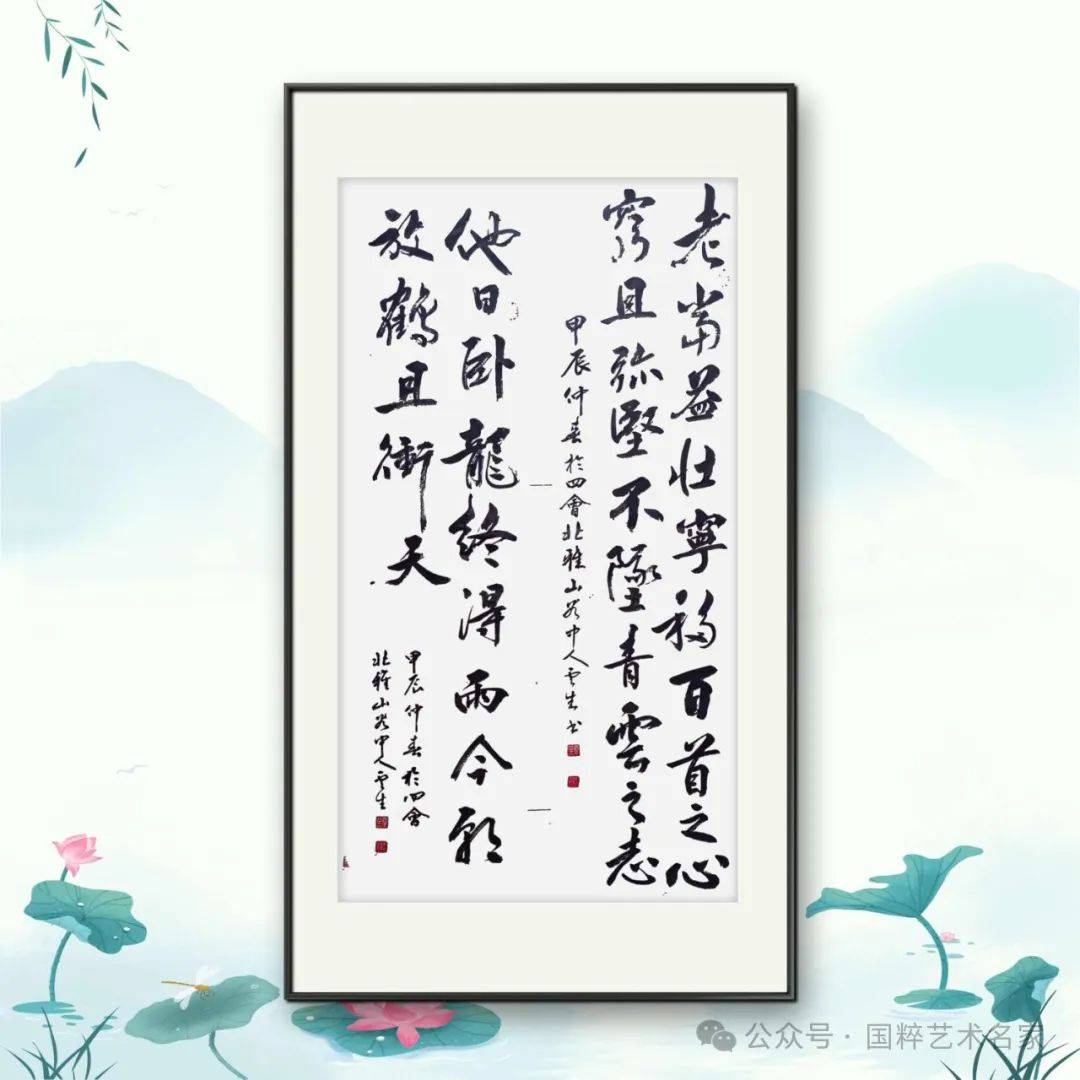 老當益壯寧移百首之心
窮且弥堅不墜青雲之志
甲辰仲春於四會北雅山谷中人云生书
他日卧龍終得雨今朝
放鶴且衝天
甲辰仲春於四會
北雅山谷中人云生
公众号·国粹艺术名家